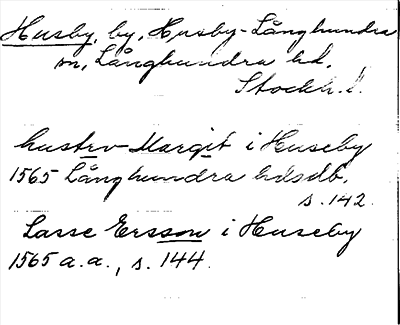 Husby, by, Husby-Långhundra
sn, Långhundra hd,
Stockh. l.
hustrv Margit i Huseby
1565 Långhundra hdsdb,
s. 142.
Lasse Ersson i Huseby
1565 a. a., s. 144.